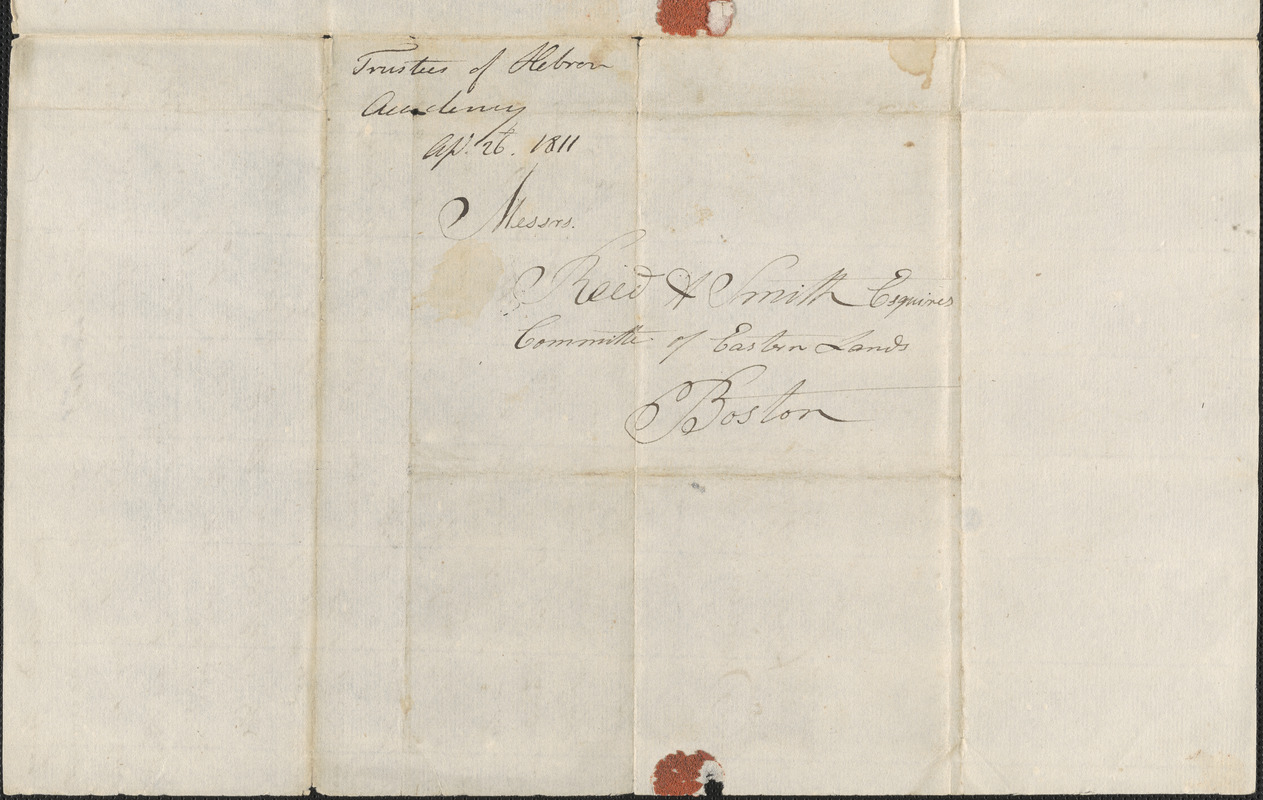 Trustees of Hebron
Academy
Apl. 26. 1811
Messrs.
Reed & Smith Esquires
Committe of Eastern Lands
Boston